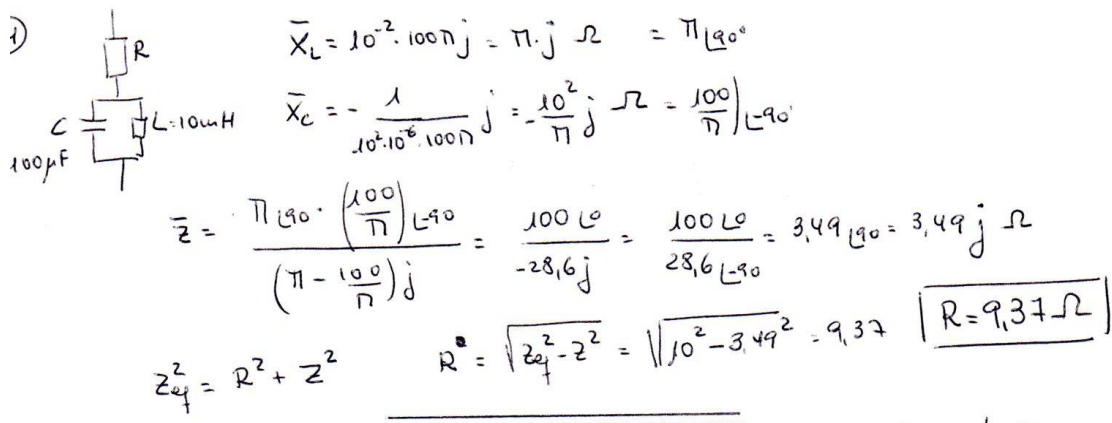 1)
R
C
100μF
L=10mH
X̄_L = 10⁻²·100π j = π·j Ω = π∠90°
X̄_C = - 1/(10²·10⁻⁶·100π) j = -10²/π j Ω = (100/π)∠-90°
z̄ = (π∠90 · (100/π)∠-90)/((π - 100/π) j) = 100∠0/(-28,6j) = 100∠0/(28,6∠-90) = 3,49∠90 = 3,49 j Ω
Z_eq² = R² + Z²
R = √(Z_eq² - Z²) = √(10² - 3,49²) = 9,37
R = 9,37 Ω